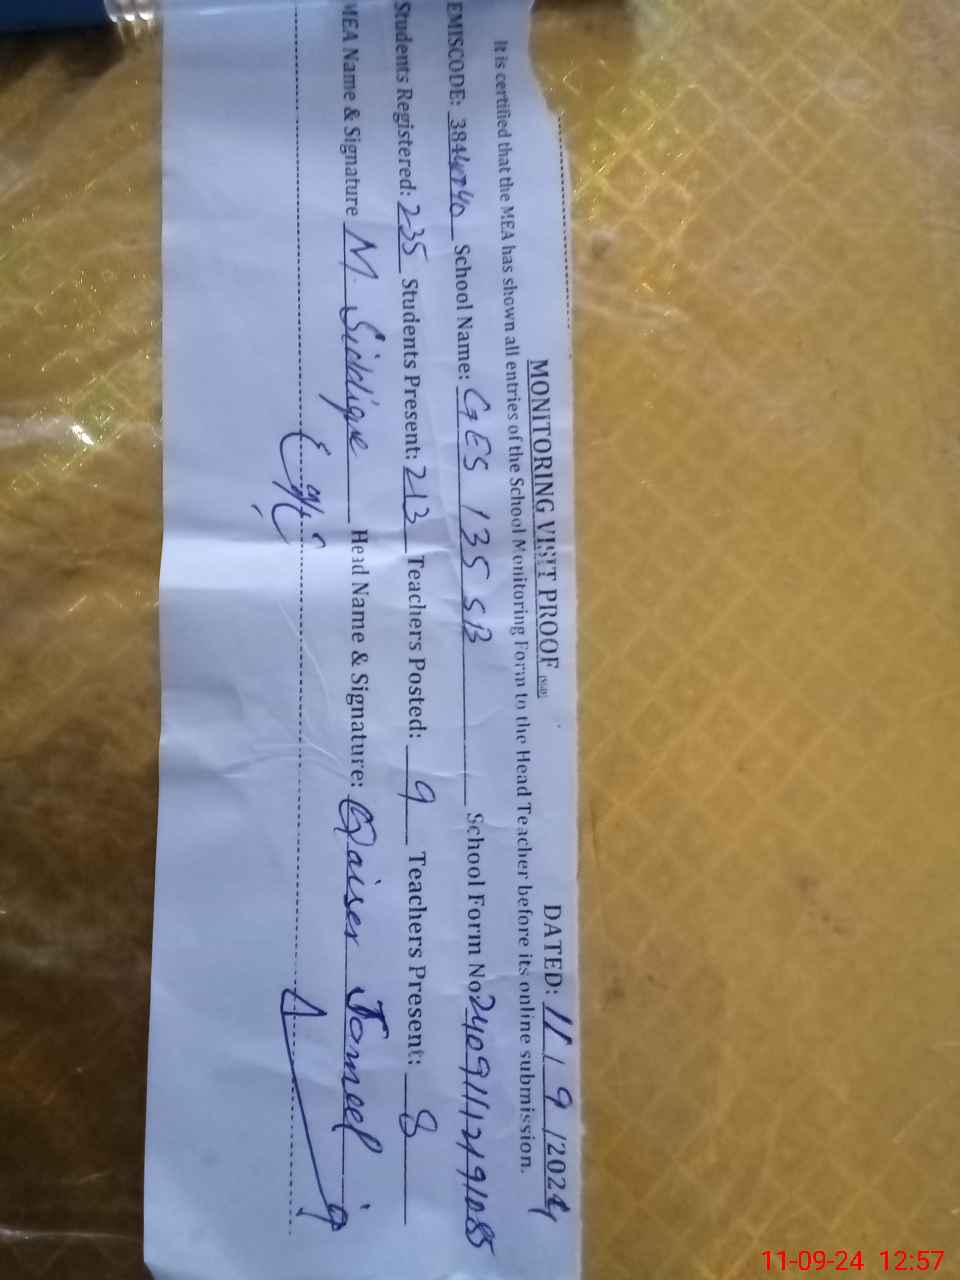 MONITORING VISIT PROOF DATED: 11 / 9 / 2024
It is certified that the MEA has shown all entries of the School Monitoring Form to the Head Teacher before its online submission.
EMISCODE: School Name: GES 135 SB School Form No
Students Registered: 235 Students Present: 213 Teachers Posted: 9 Teachers Present: 8
MEA Name & Signature M. Siddique Head Name & Signature: Qaiser Jameel
11-09-24 12:57